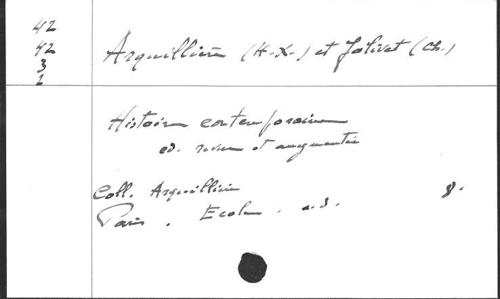 42
42
3
2
Arquillière (H-X.) et Jolivet (Ch.)
Histoire contemporaine
ed. revue et augmentée
Coll. Arquillière
Paris. Ecole. s.d. 8.